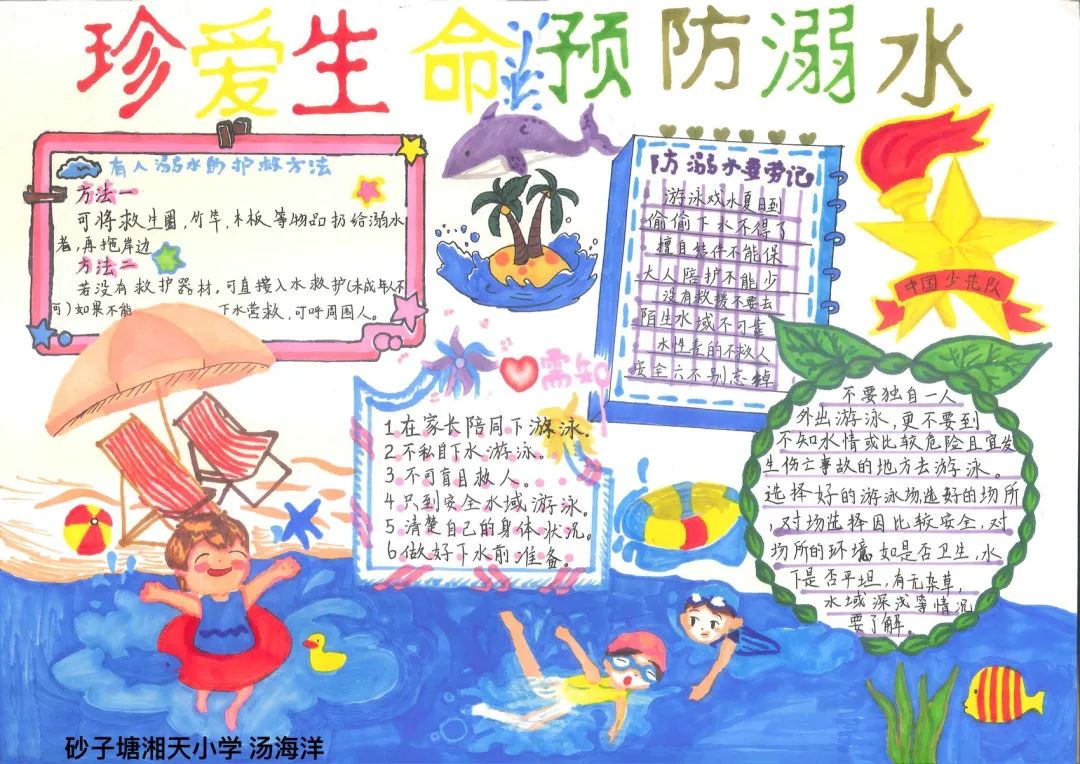 珍爱生命预防溺水
有人溺水的护救方法
方法一
可将救生圈,竹竿,木板等物品扔给溺水
者,再拖岸边
方法二
若没有救护器材,可直接入水救护(未成年人不
可)如果不能 下水营救,可呼周围人。
防溺水要劳记
游泳戏水夏日到
偷偷下水不得了
擅自结伴不能保
大人陪护不能少
没有救援不要去
陌生水域不可靠
水性差的不救人
安全六不别忘掉
中国少先队
需知
1.在家长陪同下游泳。
2.不私自下水游泳。
3.不可盲目救人。
4.只到安全水域游泳。
5.清楚自己的身体状况。
6.做好下水前准备。
不要独自一人
外出游泳,更不要到
不知水情或比较危险且宜发
生伤亡事故的地方去游泳。
选择好的游泳场选好的场所
,对场选择因比较安全,对
场所的环境如是否卫生,水
下是否平坦,有无杂草,
水域深浅等情况
要了解。
砂子塘湘天小学 汤海洋